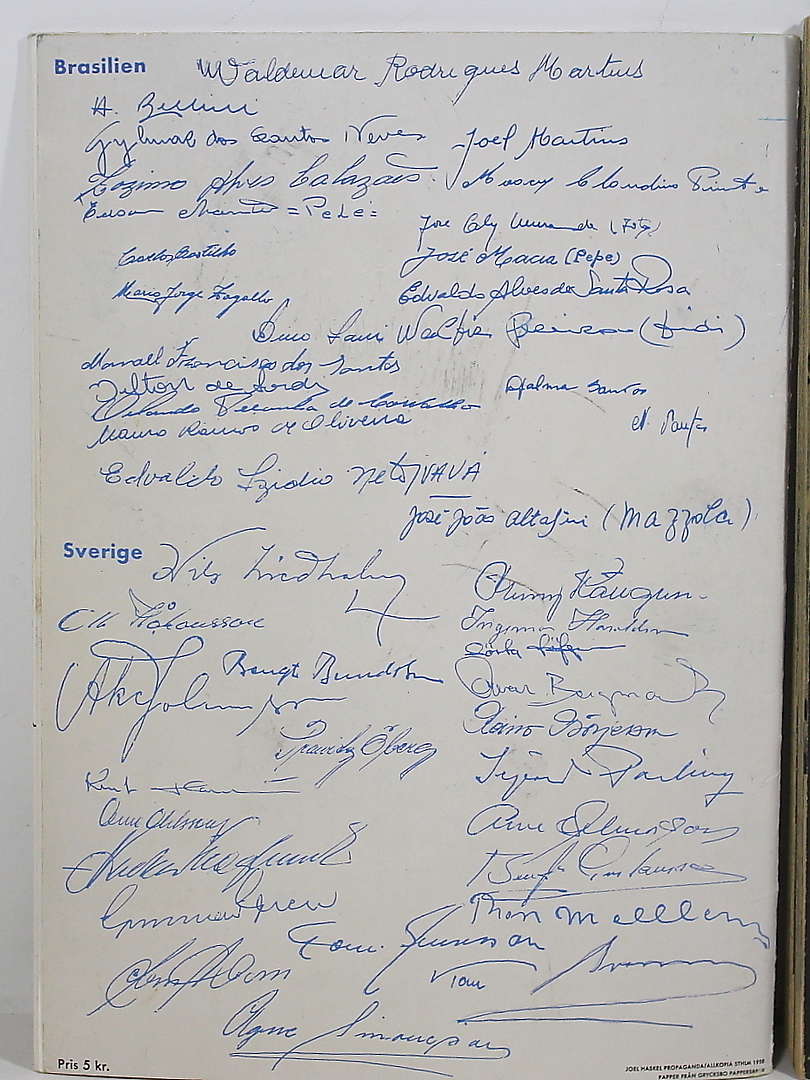 Brasilien Waldemar Rodrigues Martins
H. Bellini
Gylmar dos Santos Neves Joel Martins
Zozimo Alves Calazaes Moacy Claudius Pinto
Edson = Pelé =
José Ely
Carlos Castilho José Macia (Pepe)
Mario Jorge Zagallo Edvaldo Alves de Santa Rosa
Waldir Pereira (Didi)
Manoell Francisco dos Santos
Nilton de Sordi Djalma Santos
Orlando Peçanha de Carvalho
Mauro Ramos de Oliveira N. Santos
Edvaldo Izidio Neto/VAVÁ
José João Altafini (Mazzola)
Sverige Nils Liedholm
Henry Källgren
Ingemar Haraldsson
Gösta Löfgren
Bengt Berndtsson
Åke Johansson Orvar Bergmark
Reino Börjesson
Prawitz Öberg
Sigvard Parling
Kurt Hamrin
Owe Ohlsson
Arne Selmosson
Bengt Gustavsson
Gunnar Gren
Thor Melleby
Tore Svensson
Agne Simonsson
Pris 5 kr.
JOEL HASKEL PROPAGANDA/FALLKOPIA STHLM 1958
PAPPER FRÅN GRYCKSBO PAPPERSBRUK